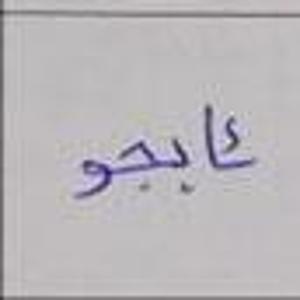 ئابجو